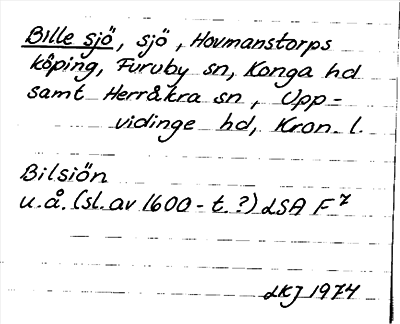 Bille sjö, sjö, Hovmanstorps
köping, Furuby sn, Konga hd
samt Herråkra sn, Upp=
vidinge hd, Kron. l.
Bilsiön
u.å. (sl. av 1600-t.?) LSA F 7
LKJ 1974